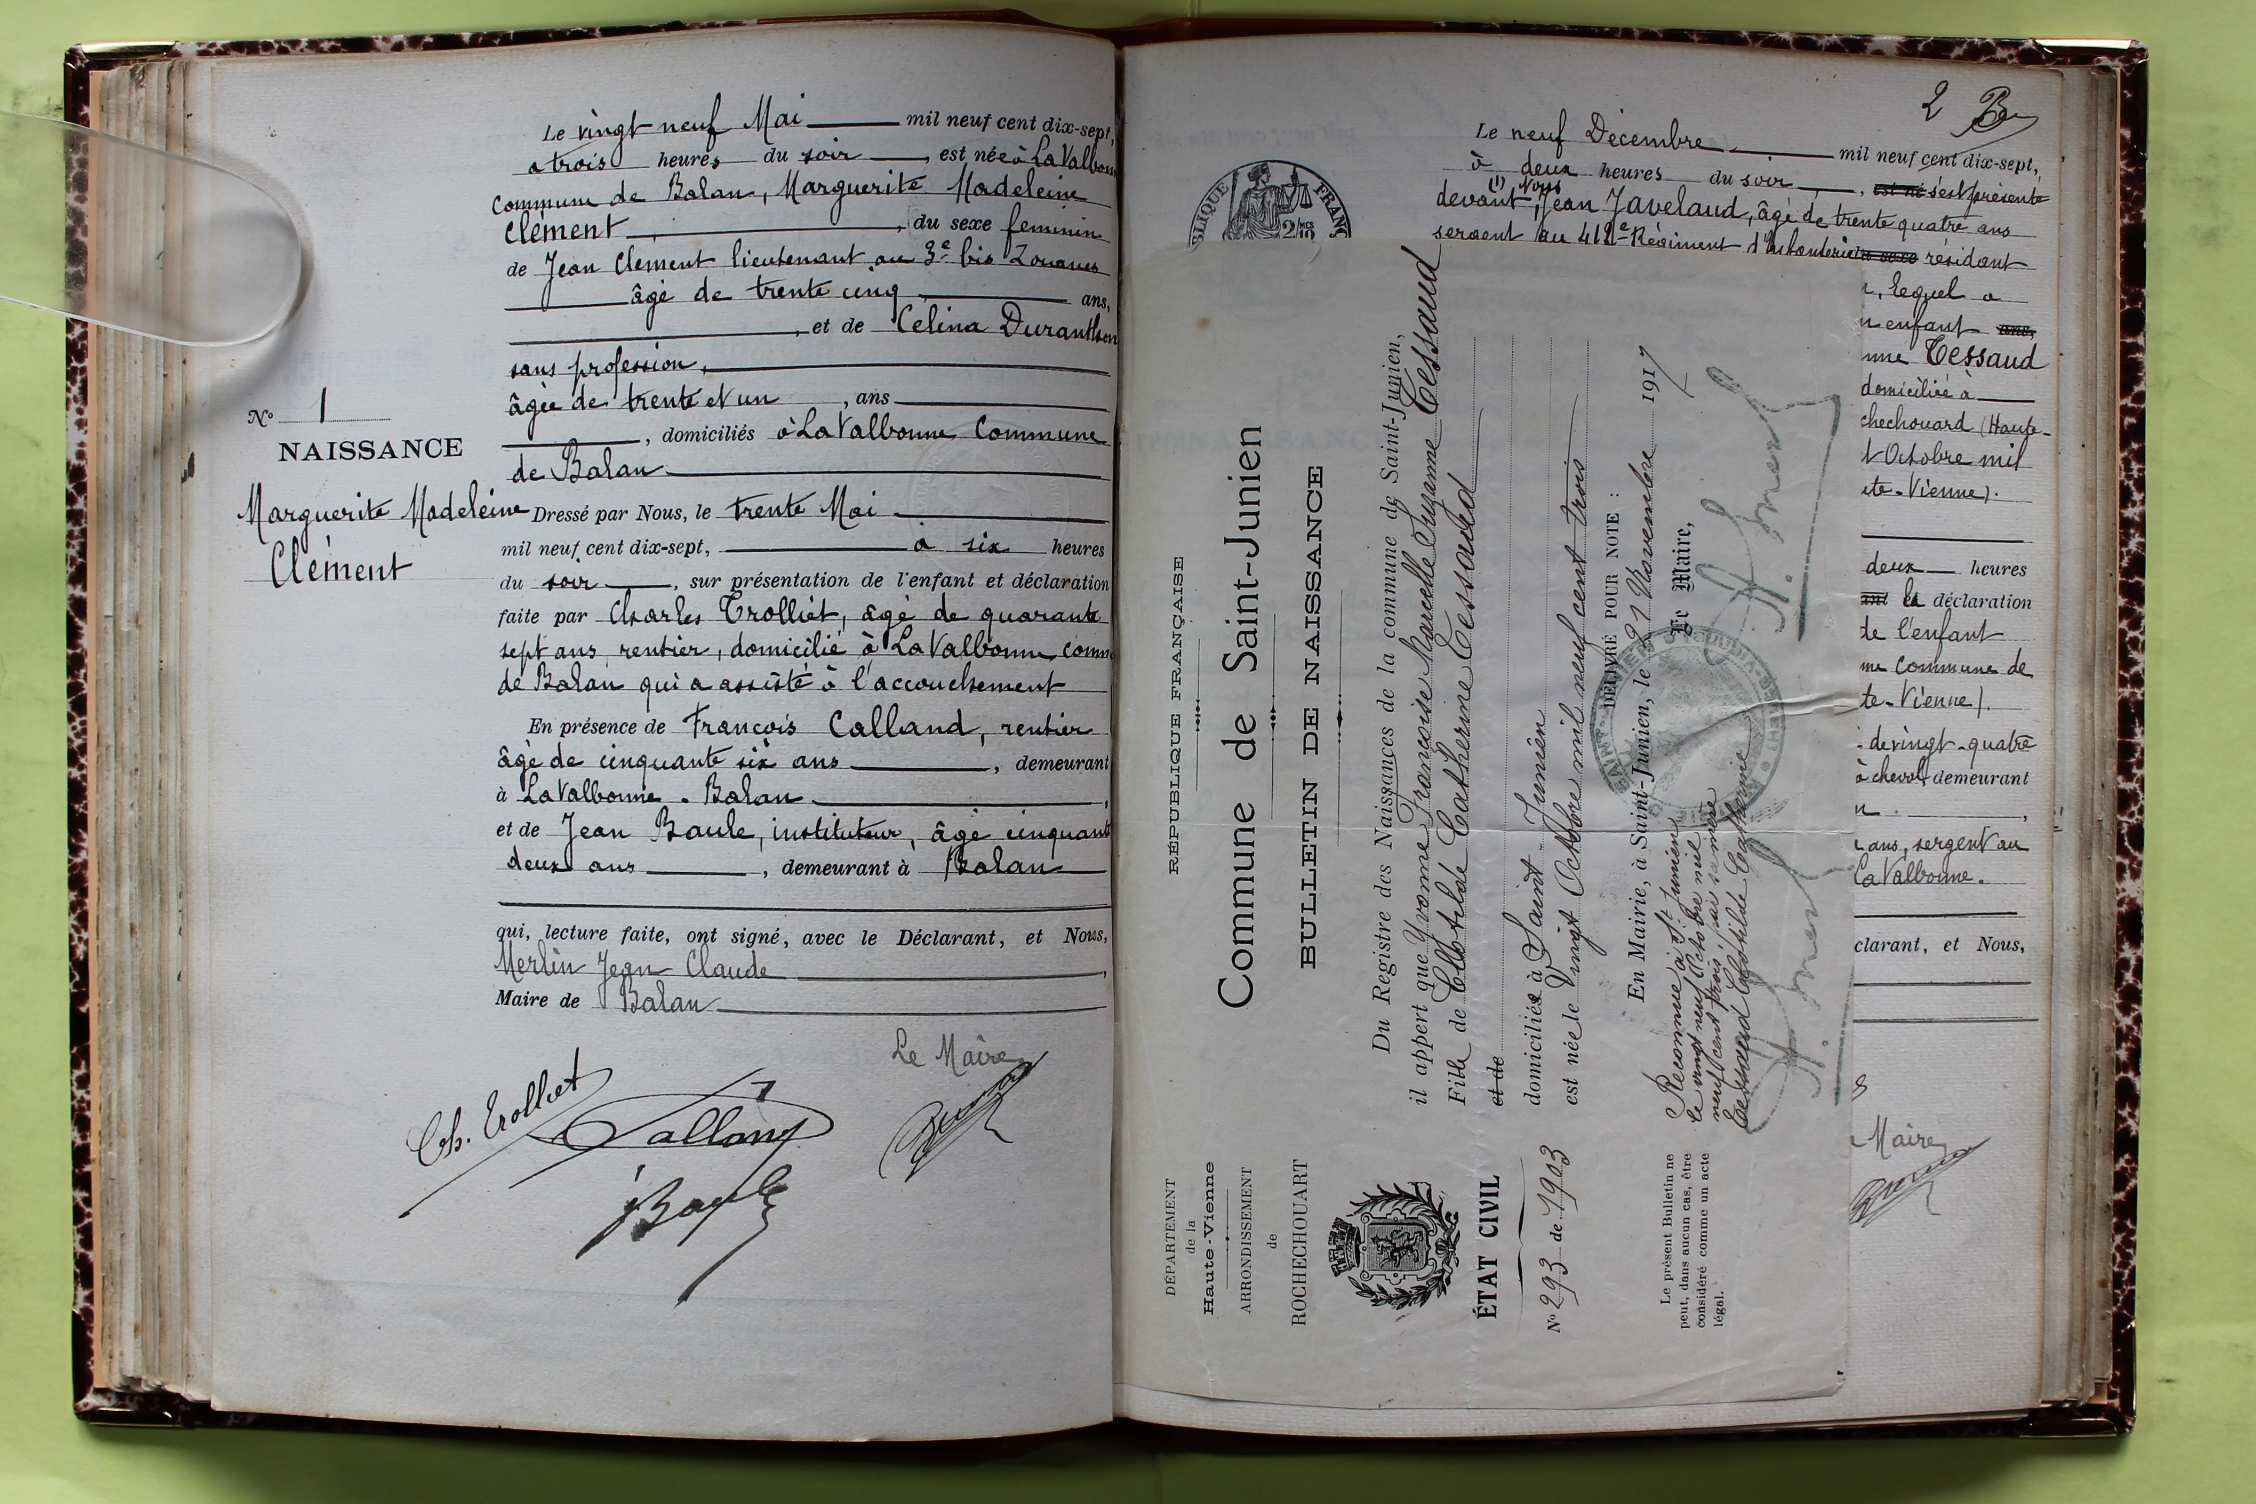 Le vingt neuf Mai mil neuf cent dix-sept,
a trois heures du soir, est née à La Valbonne
Commune de Balan, Marguerite Madeleine
Clément, du sexe feminin
de Jean Clement lieutenant au 3e bis Zouaves
âgé de trente cinq ans,
, et de Celina Duranthon
sans profession,
âgée de trente et un, ans
, domiciliés à La Valbonne Commune
de Balan
No 1
NAISSANCE
Marguerite Madeleine
Clément
Dressé par Nous, le trente Mai
mil neuf cent dix-sept, à six heures
du soir, sur présentation de l'enfant et déclaration
faite par Charles Trolliet, âgé de quarante
sept ans, rentier, domicilié à La Valbonne, comm
de Balan qui a assisté à l'accouchement
En présence de François Calland, rentier
âgé de cinquante six ans, demeurant
à La Valbonne. Balan,
et de Jean Baule, instituteur, âgé cinquante
deux ans, demeurant à Balan
qui, lecture faite, ont signé, avec le Déclarant, et Nous,
Merlin Jean Claude,
Maire de Balan
Le Maire
Ch. Trolliet
Calland
Baule
2
Le neuf Décembre mil neuf cent dix-sept,
à deux heures du soir, est né s'est présenté
devant (1) Nous Jean Javelaud, âgé de trente quatre ans
sergent au 412e Régiment d'Infanterie du sexe résidant
, lequel a
n enfant ans,
nne Tessaud
domiciliée à
chechouard (Haute-
t Octobre mil
te-Vienne).
deux heures
ant la déclaration
de l'enfant
commune de
te-Vienne).
de vingt-quatre
à cheval, demeurant
n ,
ans, sergent au
La Valbonne.
clarant, et Nous,
Maire
BLIQUE FRANÇ
2/10 MES
RÉPUBLIQUE FRANÇAISE
Commune de Saint-Junien
BULLETIN DE NAISSANCE
Du Registre des Naissances de la commune de Saint-Junien,
il appert que Yvonne Françoise Marcelle Suzanne Tessaud
Fille de Clotilde Catherine Tessaud
et de
domiciliée à Saint Junien
est née le Vingt Octobre mil neuf cent trois
DÉLIVRÉ POUR NOTE :
En Mairie, à Saint-Junien, le 21 Novembre 1917
Le Maire,
Reconnue à St Junien
le vingt neuf Octobre mil
neuf cent trois par sa mère
Tessaud Clotilde Catherine
DÉPARTEMENT
de la
Haute-Vienne
ARRONDISSEMENT
de
ROCHECHOUART
ÉTAT CIVIL
No 293 de 1903
Le présent Bulletin ne
peut, dans aucun cas, être
considéré comme un acte
légal.